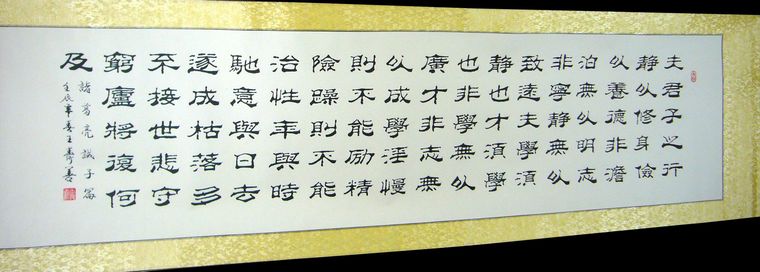 夫君子之行
静以修身儉
以養德非澹
泊無以明志
非寧静無以
致遠夫學須
静也才須學
也非學無以
廣才非志無
以成學淫慢
則不能励精
險躁則不能
治性年與時
馳意與日去
遂成枯落多
不接世悲守
窮廬將復何
及
諸葛亮誡子篇
壬辰年王壽善